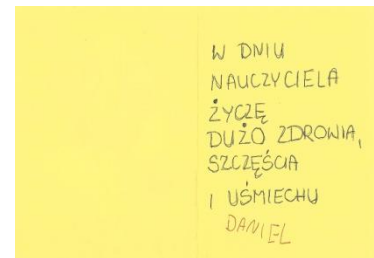 W DNIU
NAUCZYCIELA
ŻYCZĘ
DUŻO ZDROWIA,
SZCZĘŚCIA
I UŚMIECHU
DANIEL